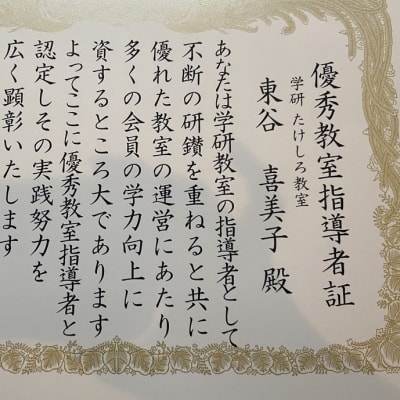 優秀教室指導者証
学研 たけしろ教室
東谷 喜美子 殿
あなたは学研教室の指導者として
不断の研鑽を重ねると共に
優れた教室の運営にあたり
多くの会員の学力向上に
資するところ大であります
よってここに優秀教室指導者と
認定しその実践努力を
広く顕彰いたします